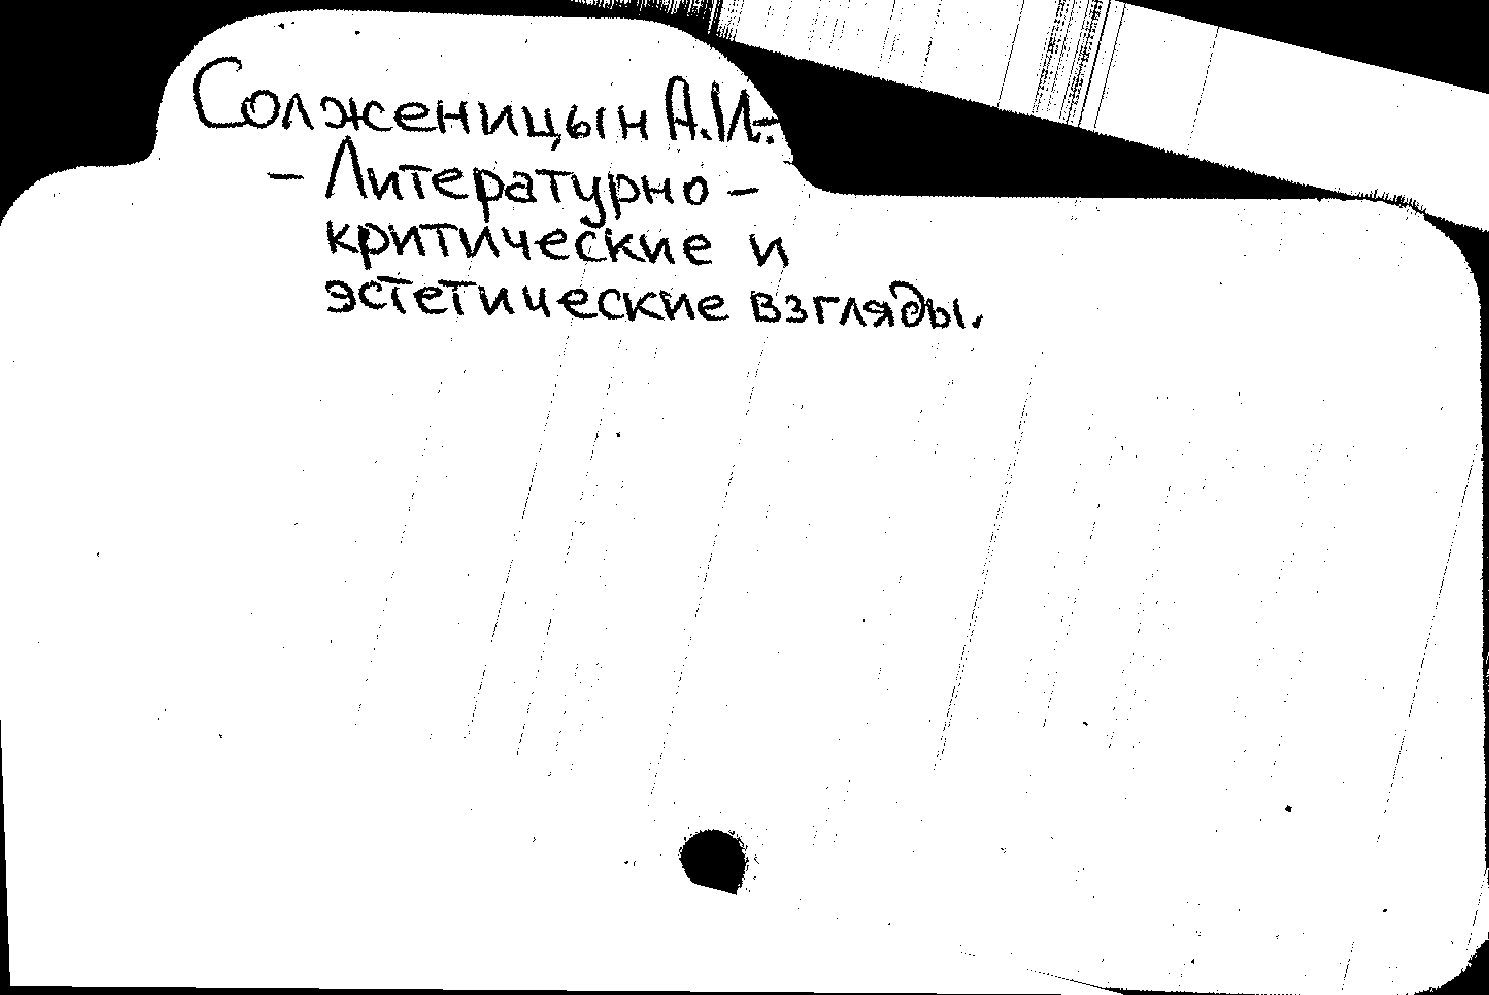 Солженицын А.И.:
– Литературно –
критические и
эстетические взгляды.